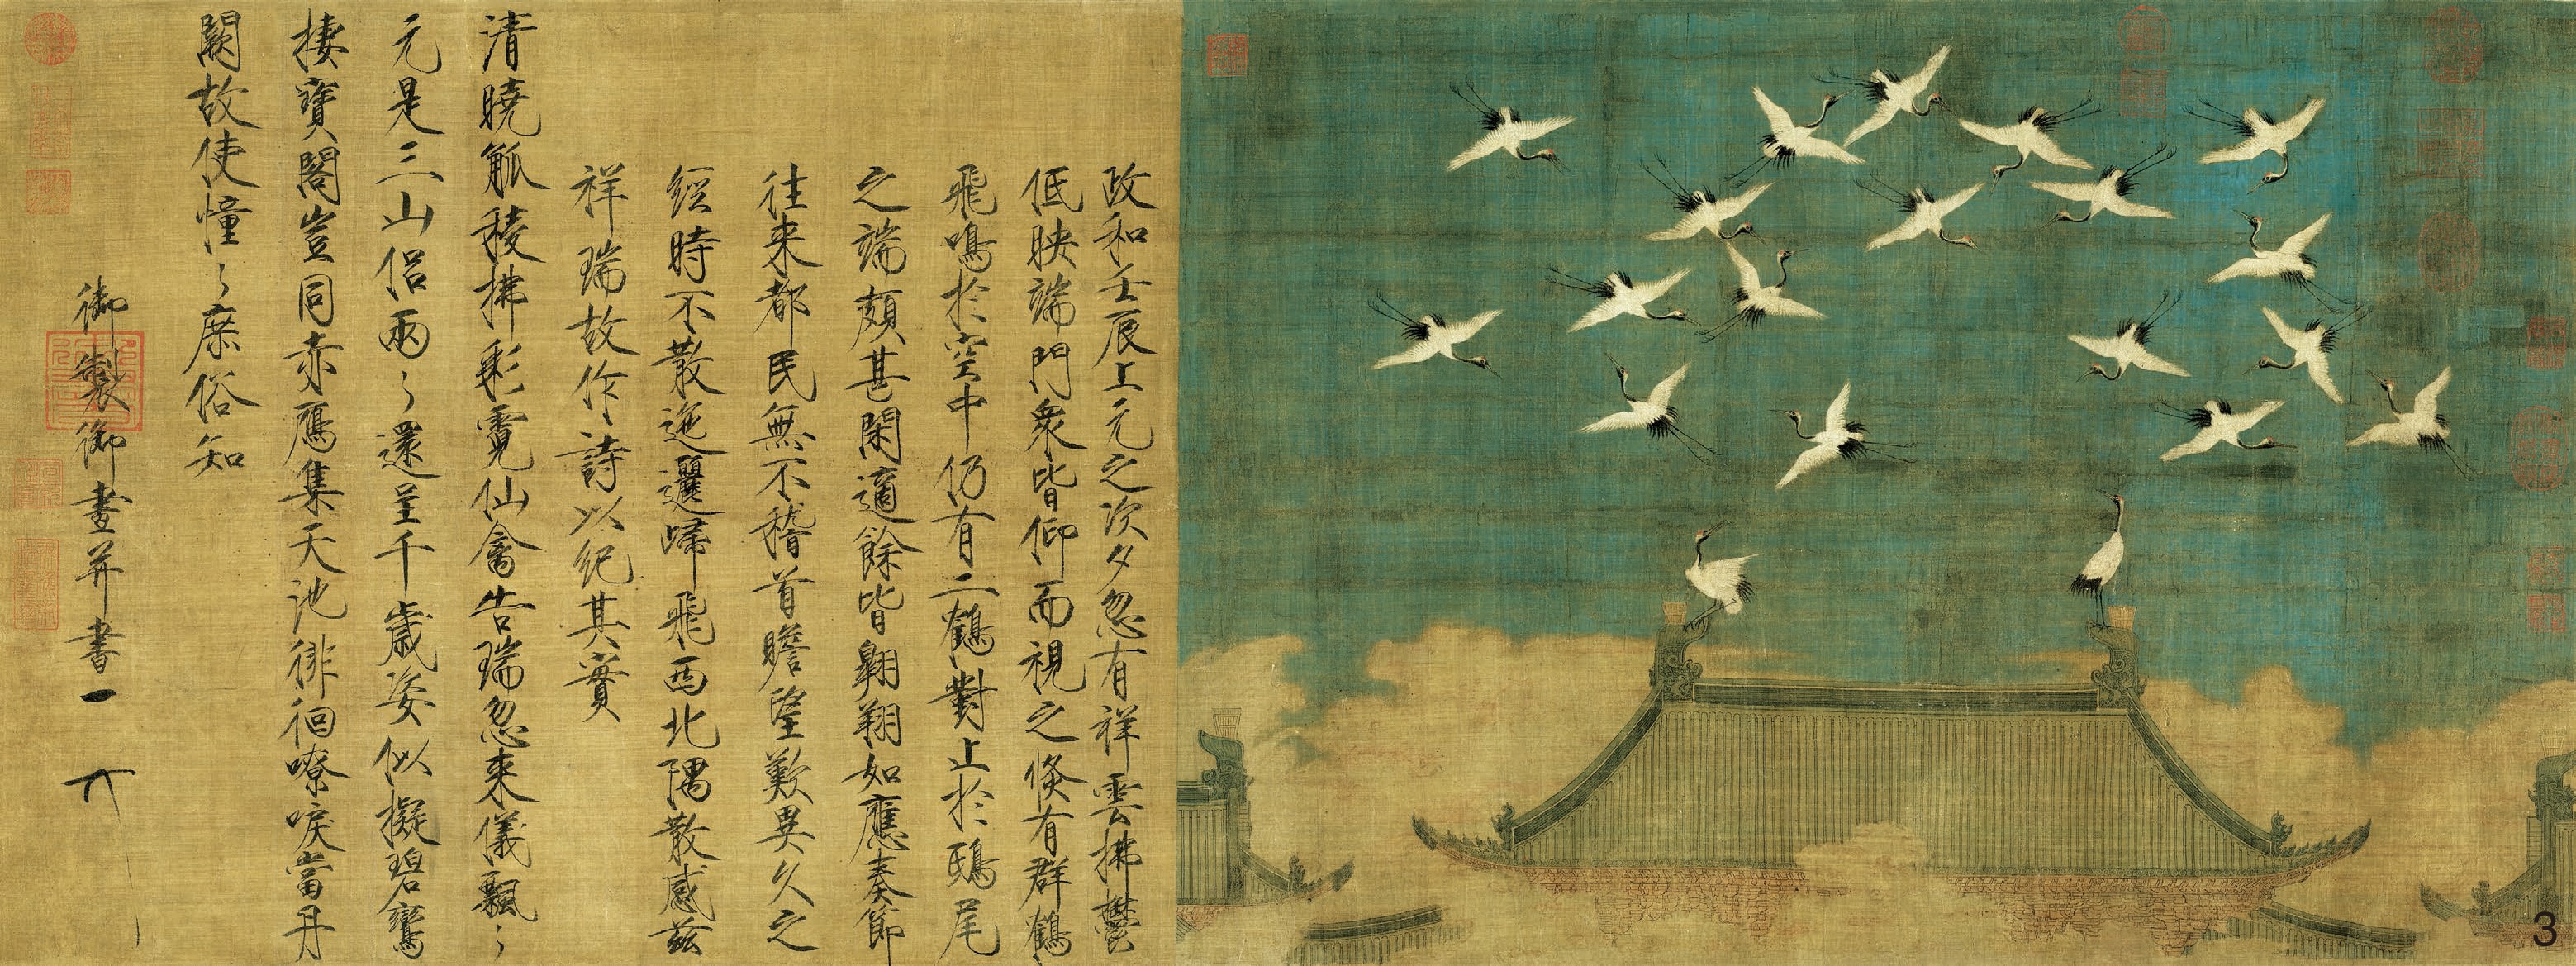 政和壬辰上元之次夕忽有祥雲拂鬱
低映端門衆皆仰而視之倏有群鶴
飛鳴於空中仍有二鶴對止於鴟尾
之端頗甚閑適餘皆翱翔如應奏節
往来都民無不稽首瞻望歎異久之
經時不散迤邐歸飛西北隅散感茲
祥瑞故作詩以紀其實
清曉觚稜拂彩霓仙禽告瑞忽来儀飄〻
元是三山侶兩〻還呈千歲姿似擬碧鸞
棲寶閣豈同赤鴈集天池徘徊嘹唳當丹
闕故使憧〻庶俗知
御製御畫并書
3